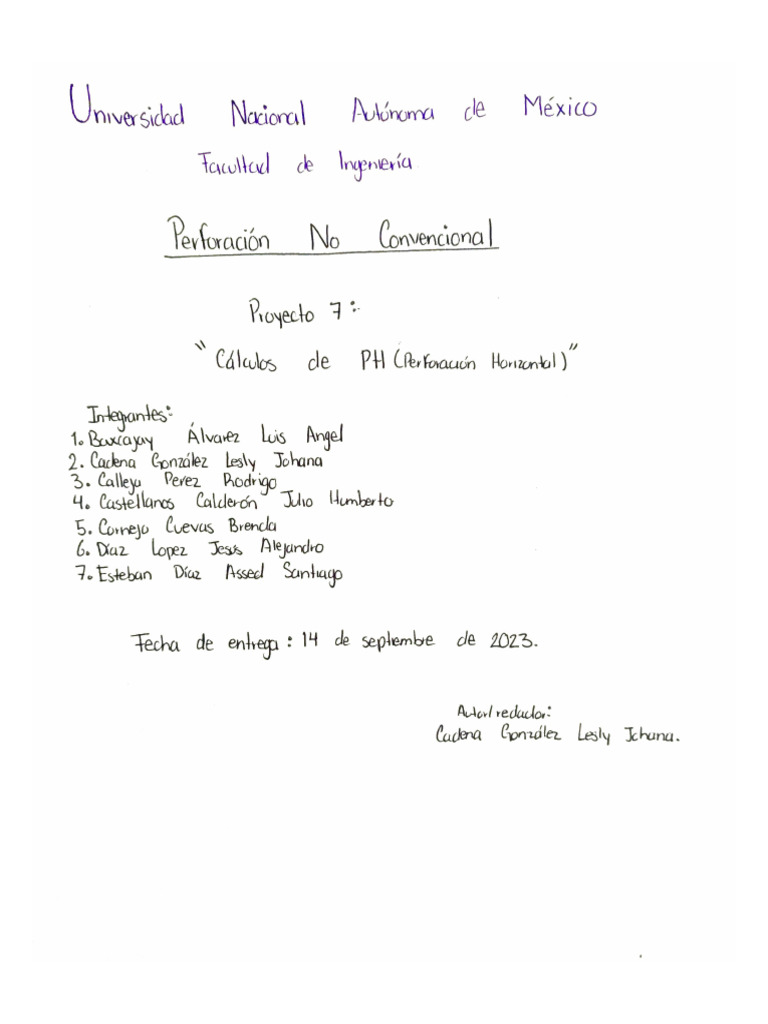 Universidad Nacional Autónoma de México
Facultad de Ingeniería
Perforación No Convencional
Proyecto 7:
"Cálculos de PH (Perforación Horizontal)"
Integrantes:
1. Álvarez Luis Angel
2. Cadena González Lesly Johana
3. Calleja Perez Rodrigo
4. Castellanos Calderón Julio Humberto
5. Cornejo Cuevas Brenda
6. Díaz Lopez Jesús Alejandro
7. Esteban Díaz Assed Santiago
Fecha de entrega: 14 de septiembre de 2023.
Autor/redactor:
Cadena González Lesly Johana.